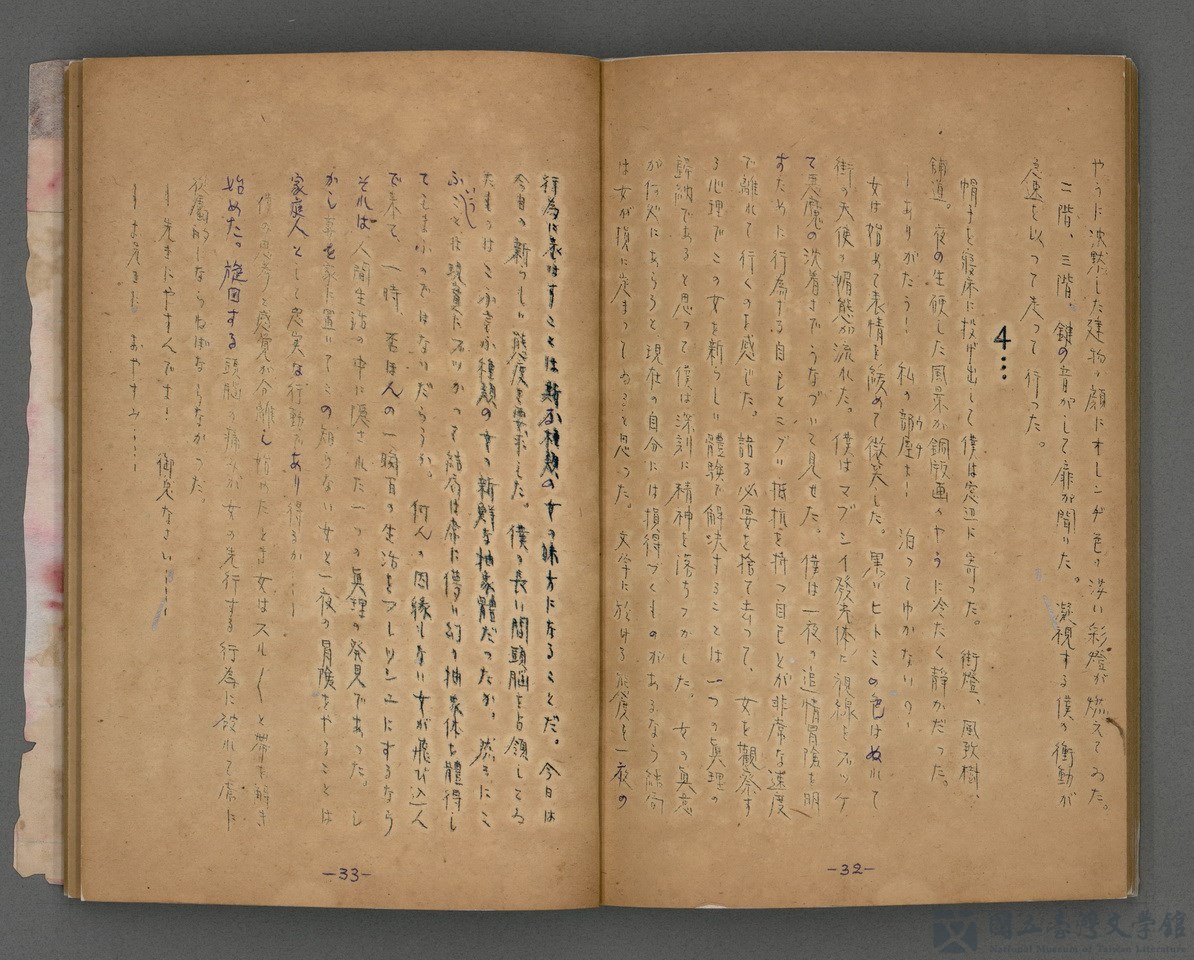 やうに沈黙した建物の顔にオレンヂ色の淡い彩燈が燃えてゐた。
二階、三階、鍵の音がして扉が開いた。凝視する僕の衝動が
急速を以って走って行った。
4…
帽子を寝床に投げ出して僕は窓辺に寄った。街燈、風致樹、
舗道。夜の生硬した風景が銅版画のやうに冷たく静かだった。
ありがたう！私の部屋よ！泊ってゆかないの！
女は始めて表情を緩めて微笑した。黒いヒトミの色はぬれて
街の天使の媚態が流れた。僕はマブシイ發光体に視線をブッケ
て悪魔の沈着さでうなづいて見せた。僕は一夜の追情冒險を明
すために行為する自己とニブい抵抗を持つ自己とが非常な速度
で離れて行くのを感じた。語る必要を捨て去って、女を觀察す
る心理でこの女を新らしい體驗で解決することは一つの真理の
歸納であると思って僕は深刻に精神を落ちつかした。女の真意
が何処にあらうと現在の自分には損得づくものがあるなら結局
は女が損に定まってゐると思った。文学に於ける態度を一夜の
-32-
行為に表はすことは新な種類の女の味方になることだ。今日は
今日の新らしい態度を要求した。僕の長い間頭脳を占領してゐ
たものはこふ言ふ種類の女の新鮮な抽象體だったか。然るにこ
ふいふことは現實にブツかって結局は常に儚い幻の抽象体を體得し
てしまふのではないだらうか。何んの因縁もない女が飛び込ん
で来て、一時、否ほんの一瞬間の生活をフレッシュにするなら
それは人間生活の中に隠された一つの真理の発見であった。し
かし妻を家に置いてこの知らない女と一夜の冒險をやることは
家庭人として忠実な行動であり得るか——
僕の思考と感覚が分離し始めたとき女はスル〱と帯を解き
始めた。旋回する頭脳の痛みが女の先行する行為に破れて床に
従屬的にならねばならなかった。
—先きにやすんでよ！御免なさい———
—お先きに おやすみ……
-33-
國立臺灣文學館
National Museum of Taiwan Literature